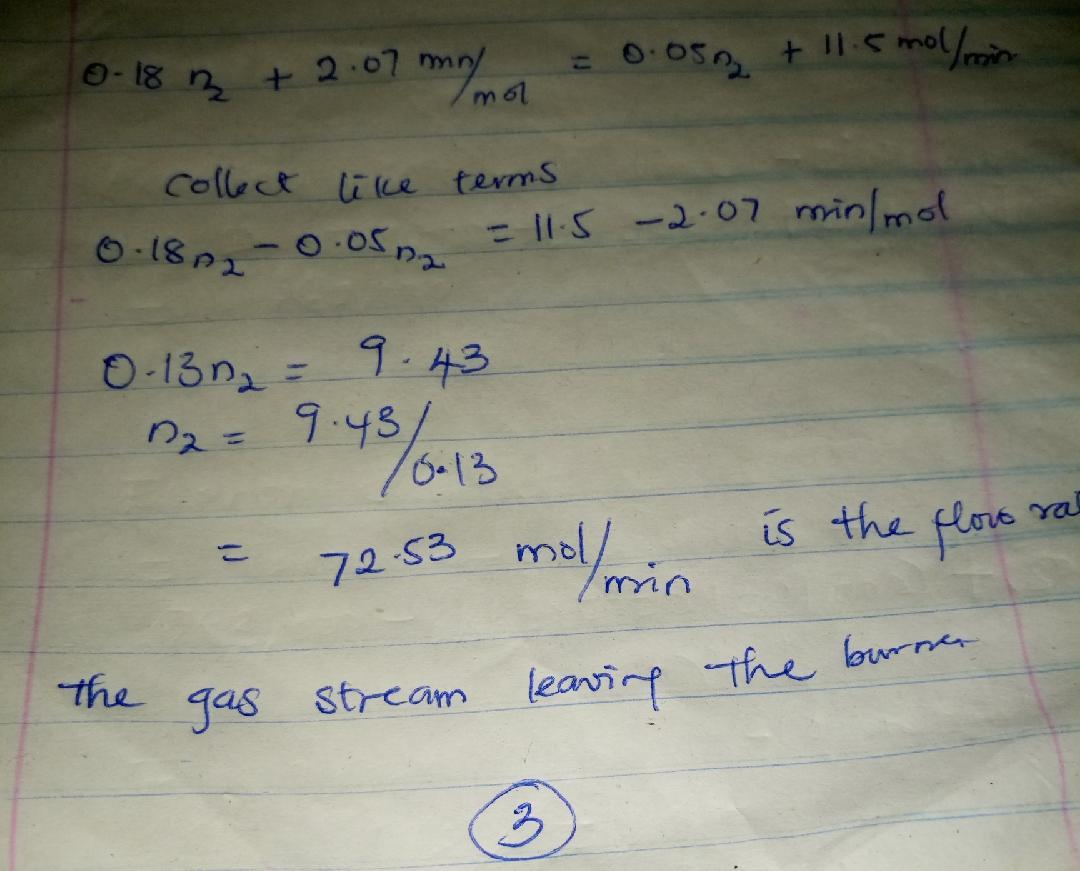 0.18 n2 + 2.07 min/mol = 0.05n2 + 11.5 mol/min
collect like terms
0.18n2 - 0.05n2 = 11.5 - 2.07 min/mol
0.13n2 = 9.43
n2 = 9.43/0.13
= 72.53 mol/min is the flow
the gas stream leaving the burner
3